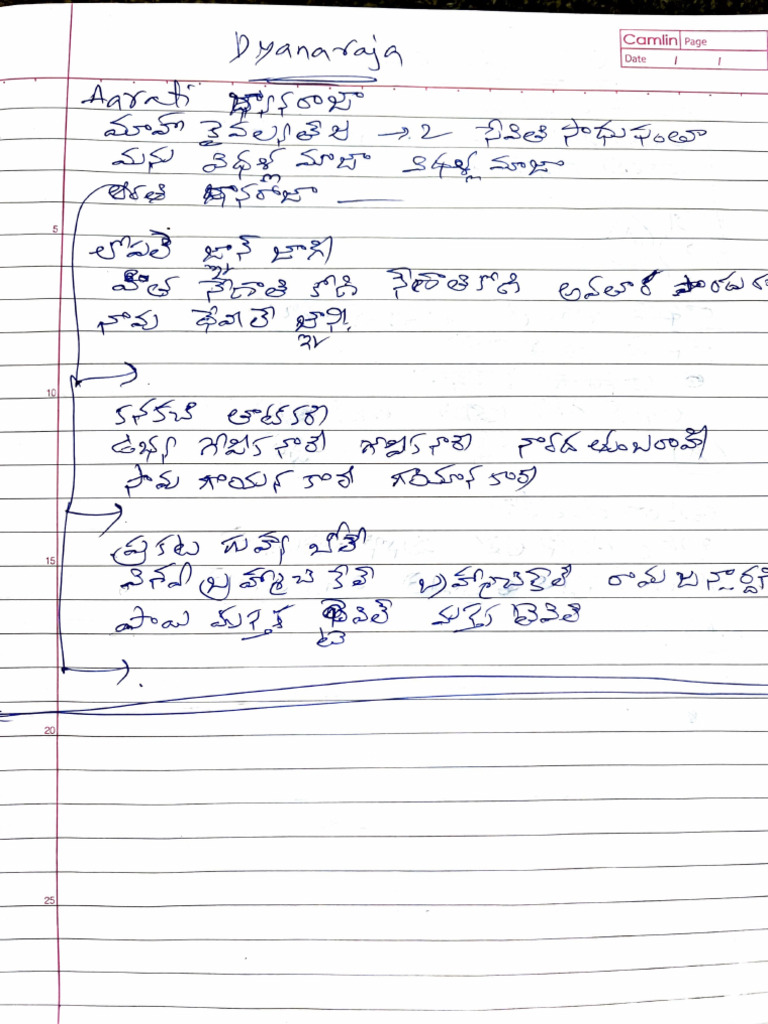 Dyanaraja
Camlin Page
Date / /
Aarati జ్ఞానరాజా
మాహా కైవల్యతేజ → 2 సేవితి సాధుసంతా
మను వేధళ్ల మాజా వేధళ్ల మాజా
ఆరతి జ్ఞానరాజా
5
లోపలే జ్ఞాన్ జాగి
నేణాతి కోడి నేణాతి కోడి అవతార
నావు థేవిలే జ్ఞాని
10
కనకచే తాటకరి
ఉభ్య గోపిక నారి గోపిక నారి నారద తుంబరాహి
సామ గాయన కారి గాయాన కారి
15
ప్రకట గుహ్య బోలే
బ్రహ్మచి కేలే బ్రహ్మచికేలే రామ జనార్దని
పాయి మస్తక టేవిలే మస్తక టేవిలే
20
25